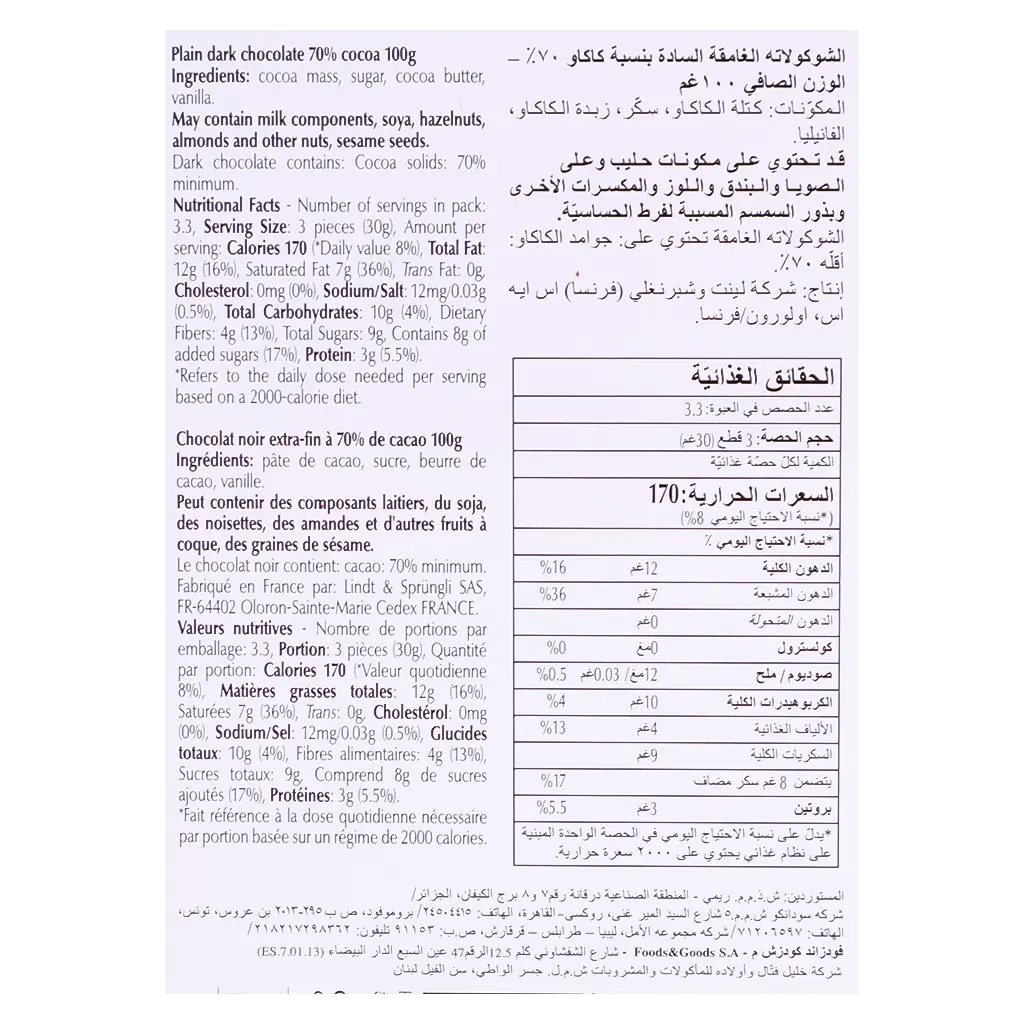 Plain dark chocolate 70% cocoa 100g
Ingredients: cocoa mass, sugar, cocoa butter,
vanilla.
May contain milk components, soya, hazelnuts,
almonds and other nuts, sesame seeds.
Dark chocolate contains: Cocoa solids: 70%
minimum.
Nutritional Facts - Number of servings in pack:
3.3, Serving Size: 3 pieces (30g), Amount per
serving: Calories 170 (*Daily value 8%), Total Fat:
12g (16%), Saturated Fat 7g (36%), Trans Fat: 0g,
Cholesterol: 0mg (0%), Sodium/Salt: 12mg/0.03g
(0.5%), Total Carbohydrates: 10g (4%), Dietary
Fibers: 4g (13%), Total Sugars: 9g, Contains 8g of
added sugars (17%), Protein: 3g (5.5%).
*Refers to the daily dose needed per serving
based on a 2000-calorie diet.
Chocolat noir extra-fin à 70% de cacao 100g
Ingrédients: pâte de cacao, sucre, beurre de
cacao, vanille.
Peut contenir des composants laitiers, du soja,
des noisettes, des amandes et d'autres fruits à
coque, des graines de sésame.
Le chocolat noir contient: cacao: 70% minimum.
Fabriqué en France par: Lindt & Sprüngli SAS,
FR-64402 Oloron-Sainte-Marie Cedex FRANCE.
Valeurs nutritives - Nombre de portions par
emballage: 3.3, Portion: 3 pièces (30g), Quantité
par portion: Calories 170 (*Valeur quotidienne
8%), Matières grasses totales: 12g (16%),
Saturées 7g (36%), Trans: 0g, Cholestérol: 0mg
(0%), Sodium/Sel: 12mg/0.03g (0.5%), Glucides
totaux: 10g (4%), Fibres alimentaires: 4g (13%),
Sucres totaux: 9g, Comprend 8g de sucres
ajoutés (17%), Protéines: 3g (5.5%).
*Fait référence à la dose quotidienne nécessaire
par portion basée sur un régime de 2000 calories.
الشوكولاته الغامقة السادة بنسبة كاكاو ٧٠٪ –
الوزن الصافي ١٠٠غم
المكوّنات: كتلة الكاكاو، سكّر، زبدة الكاكاو،
الفانيليا.
قد تحتوي على مكونات حليب وعلى
الصويا والبندق واللوز والمكسرات الأخرى
وبذور السمسم المسببة لفرط الحساسيّة.
الشوكولاته الغامقة تحتوي على: جوامد الكاكاو:
أقلّه ٧٠٪.
إنتاج: شركة لينت وشبرنغلي (فرنسا) اس ايه
اس، اولورون/فرنسا.
الحقائق الغذائيّة
عدد الحصص في العبوة: 3.3
حجم الحصة: 3 قطع (30غم)
الكمية لكلّ حصّة غذائيّة
السعرات الحرارية:170
(*نسبة الاحتياج اليومي 8%)
*نسبة الاحتياج اليومي ٪
الدهون الكلية 12غم 16%
الدهون المشبعة 7غم 36%
الدهون المتحولة 0غم
كولسترول 0مغ 0%
صوديوم / ملح 12مغ/ 0.03غم 0.5%
الكربوهيدرات الكلية 10غم 4%
الألياف الغذائية 4غم 13%
السكريات الكلية 9غم
يتضمن 8 غم سكر مضاف 17%
بروتين 3غم 5.5%
*يدلّ على نسبة الاحتياج اليومي في الحصة الواحدة المبنية
على نظام غذائي يحتوي على ٢٠٠٠ سعرة حرارية.
المستوردين: ش.ذ.م.م. ريمي - المنطقة الصناعية درقانة رقم٧ و٨ برج الكيفان، الجزائر/
شركه سودانكو ش.م.م.٥ شارع السيد المير غنى، روكسى-القاهرة، الهاتف: ٢٤٥٠٤٤١٥/ بروموفود، ص ب ٢٩٥-٢٠١٣ بن عروس، تونس،
الهاتف: ٧١٢٠٦٥٩٧/شركه مجموعه الأمل، ليبيا – طرابلس – قرقارش، ص.ب: ٩١١٥٣ تليفون: ٢١٨٢١٧٢٩٨٣٦٢/
فودزاند كودزش م - Foods&Goods S.A - شارع الشفشاوني كلم 12.5الرقم47 عين السبع الدار البيضاء (ES.7.01.13)
شركة خليل فتّال وأولاده للمأكولات والمشروبات ش.م.ل. جسر الواطي، سن الفيل لبنان